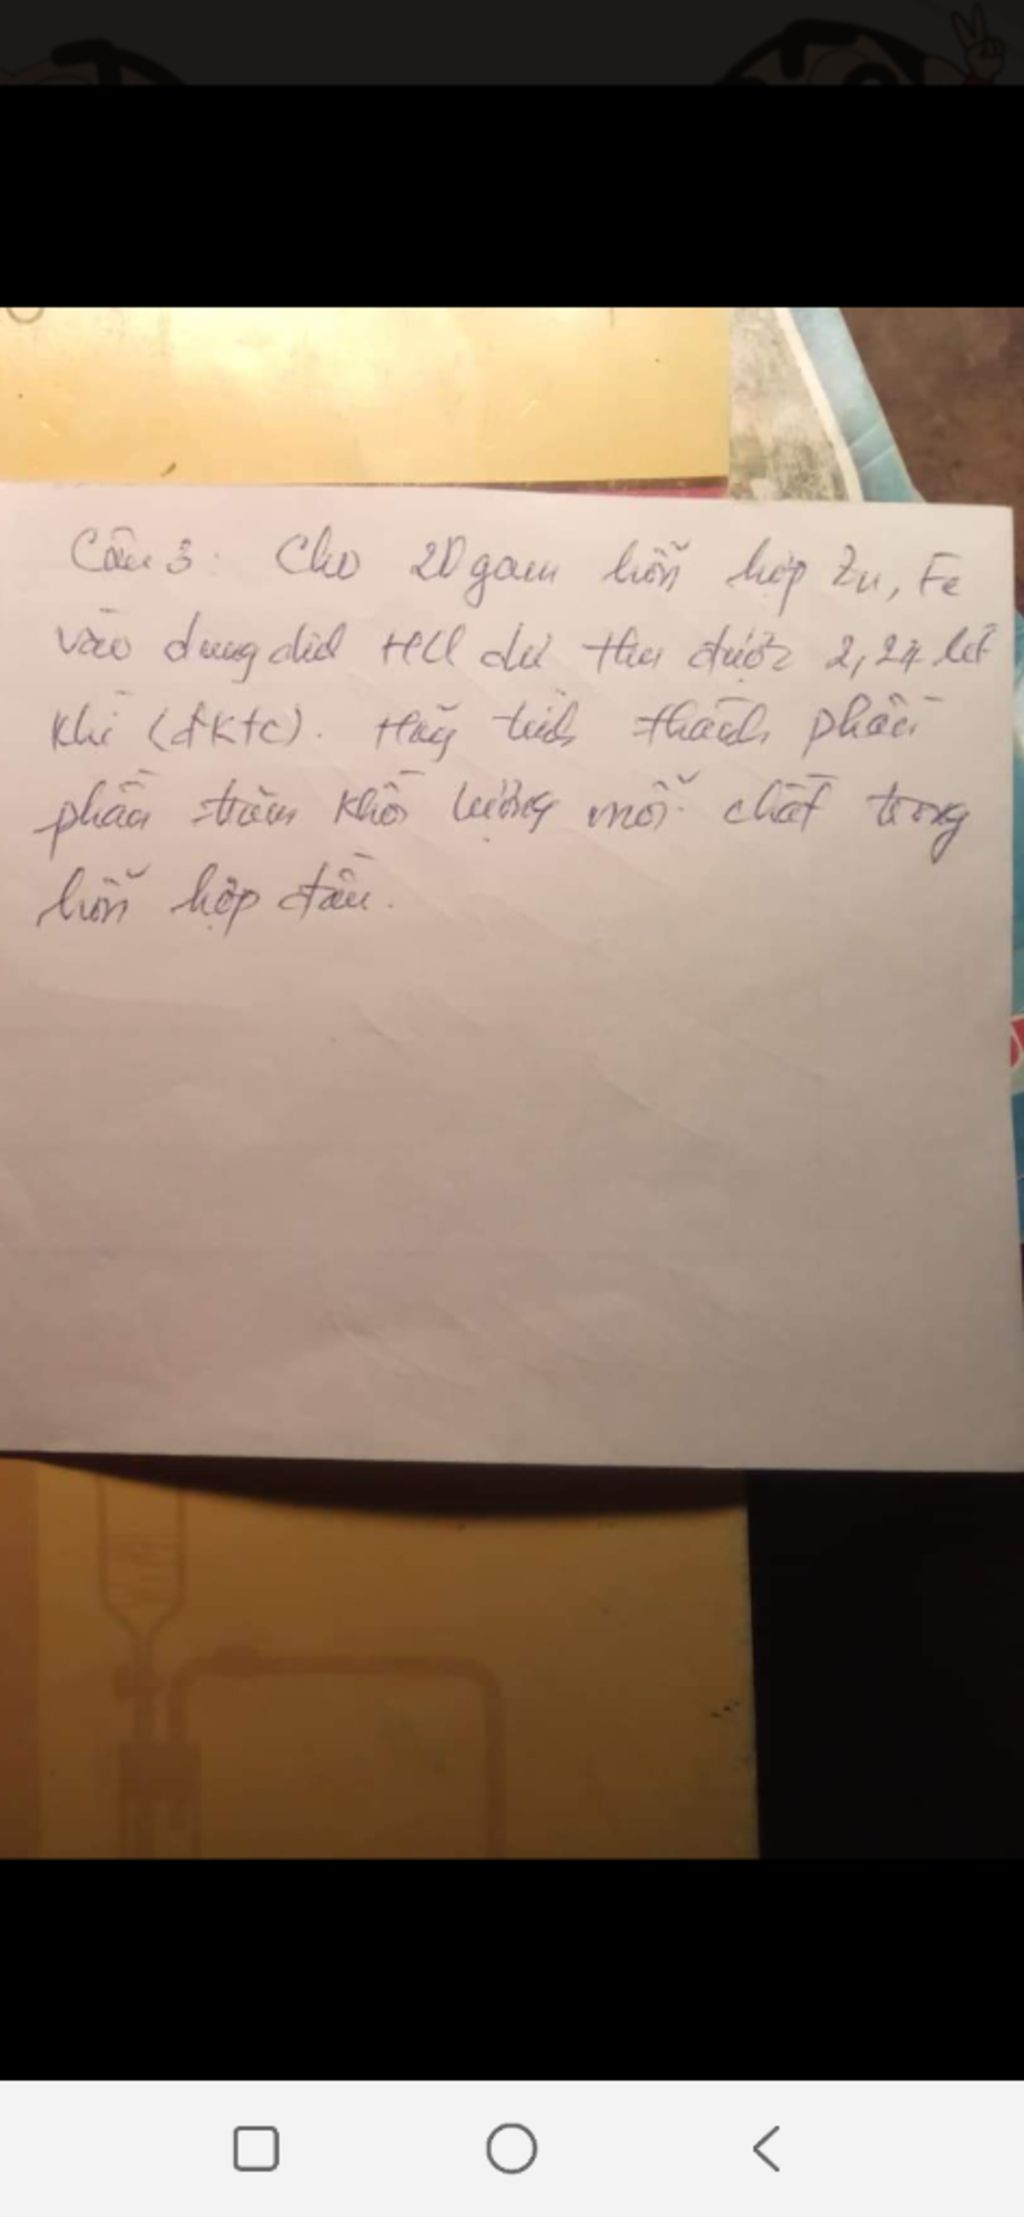 Câu 3: Cho 20 gam hỗn hợp Zn, Fe
vào dung dịch HCl dư thu được 2,24 lít
khí (đktc). Hãy tính thành phần
phần trăm khối lượng mỗi chất trong
hỗn hợp đầu.